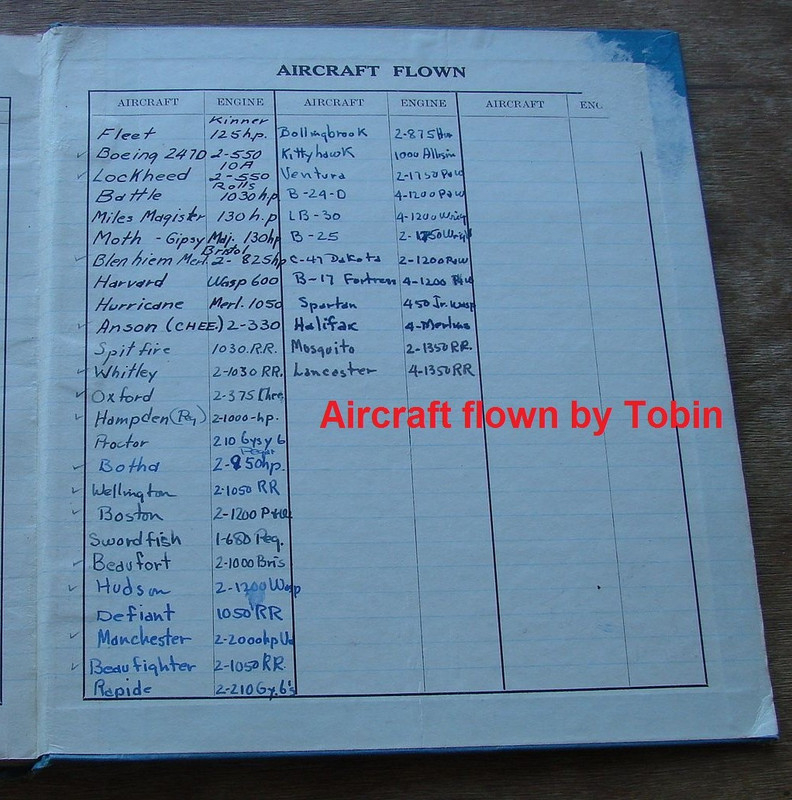 AIRCRAFT FLOWN
AIRCRAFT ENGINE AIRCRAFT ENGINE AIRCRAFT ENG
Kinner
Fleet 125 h.p.
Boeing 247D 2-550
10A
Lockheed 2-550
Rolls
Battle 1030 hp
Miles Magister 130 h.p
Moth - Gipsy Maj. 130hp
Bristol
Blenhiem Merl. 2- 825hp
Harvard Wasp 600
Hurricane Merl. 1050
Anson (CHEE.) 2-330
Spitfire 1030 R.R.
Whitley 2-1030 RR.
Oxford 2-375 Chee
Hampden 2-1000-hp.
Proctor 210 Gysy 6
Botha 2-850hp.
Wellington 2-1050 RR
Boston 2-1200
Swordfish 1-680 Peg.
Beaufort 2-1000 Bris
Hudson 2-1200 Wasp
Defiant 1050 RR
Manchester 2-2000hp
Beaufighter 2-1050 RR.
Rapide 2-210 Gy.6's
Bollingbrook 2-875
Kittyhawk 1000
Ventura 2-1750
B-24-D 4-1200
LB-30 4-1200
B-25 2-1750
C-47 Dakota 2-1200
B-17 Fortress 4-1200
Spartan 450 Jr. Wasp
Halifax 4-Merlins
Mosquito 2-1350 RR.
Lancester 4-1350 RR
Aircraft flown by Tobin